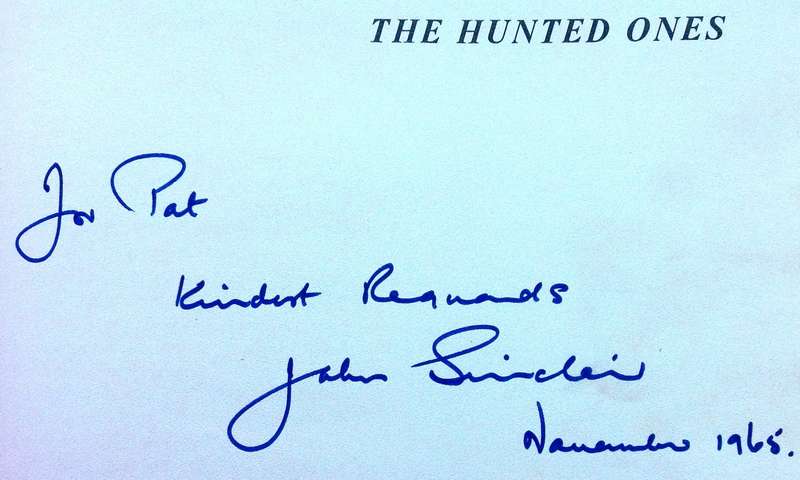 THE HUNTED ONES
For Pat
Kindest Regards
John Sinclair
November 1965.